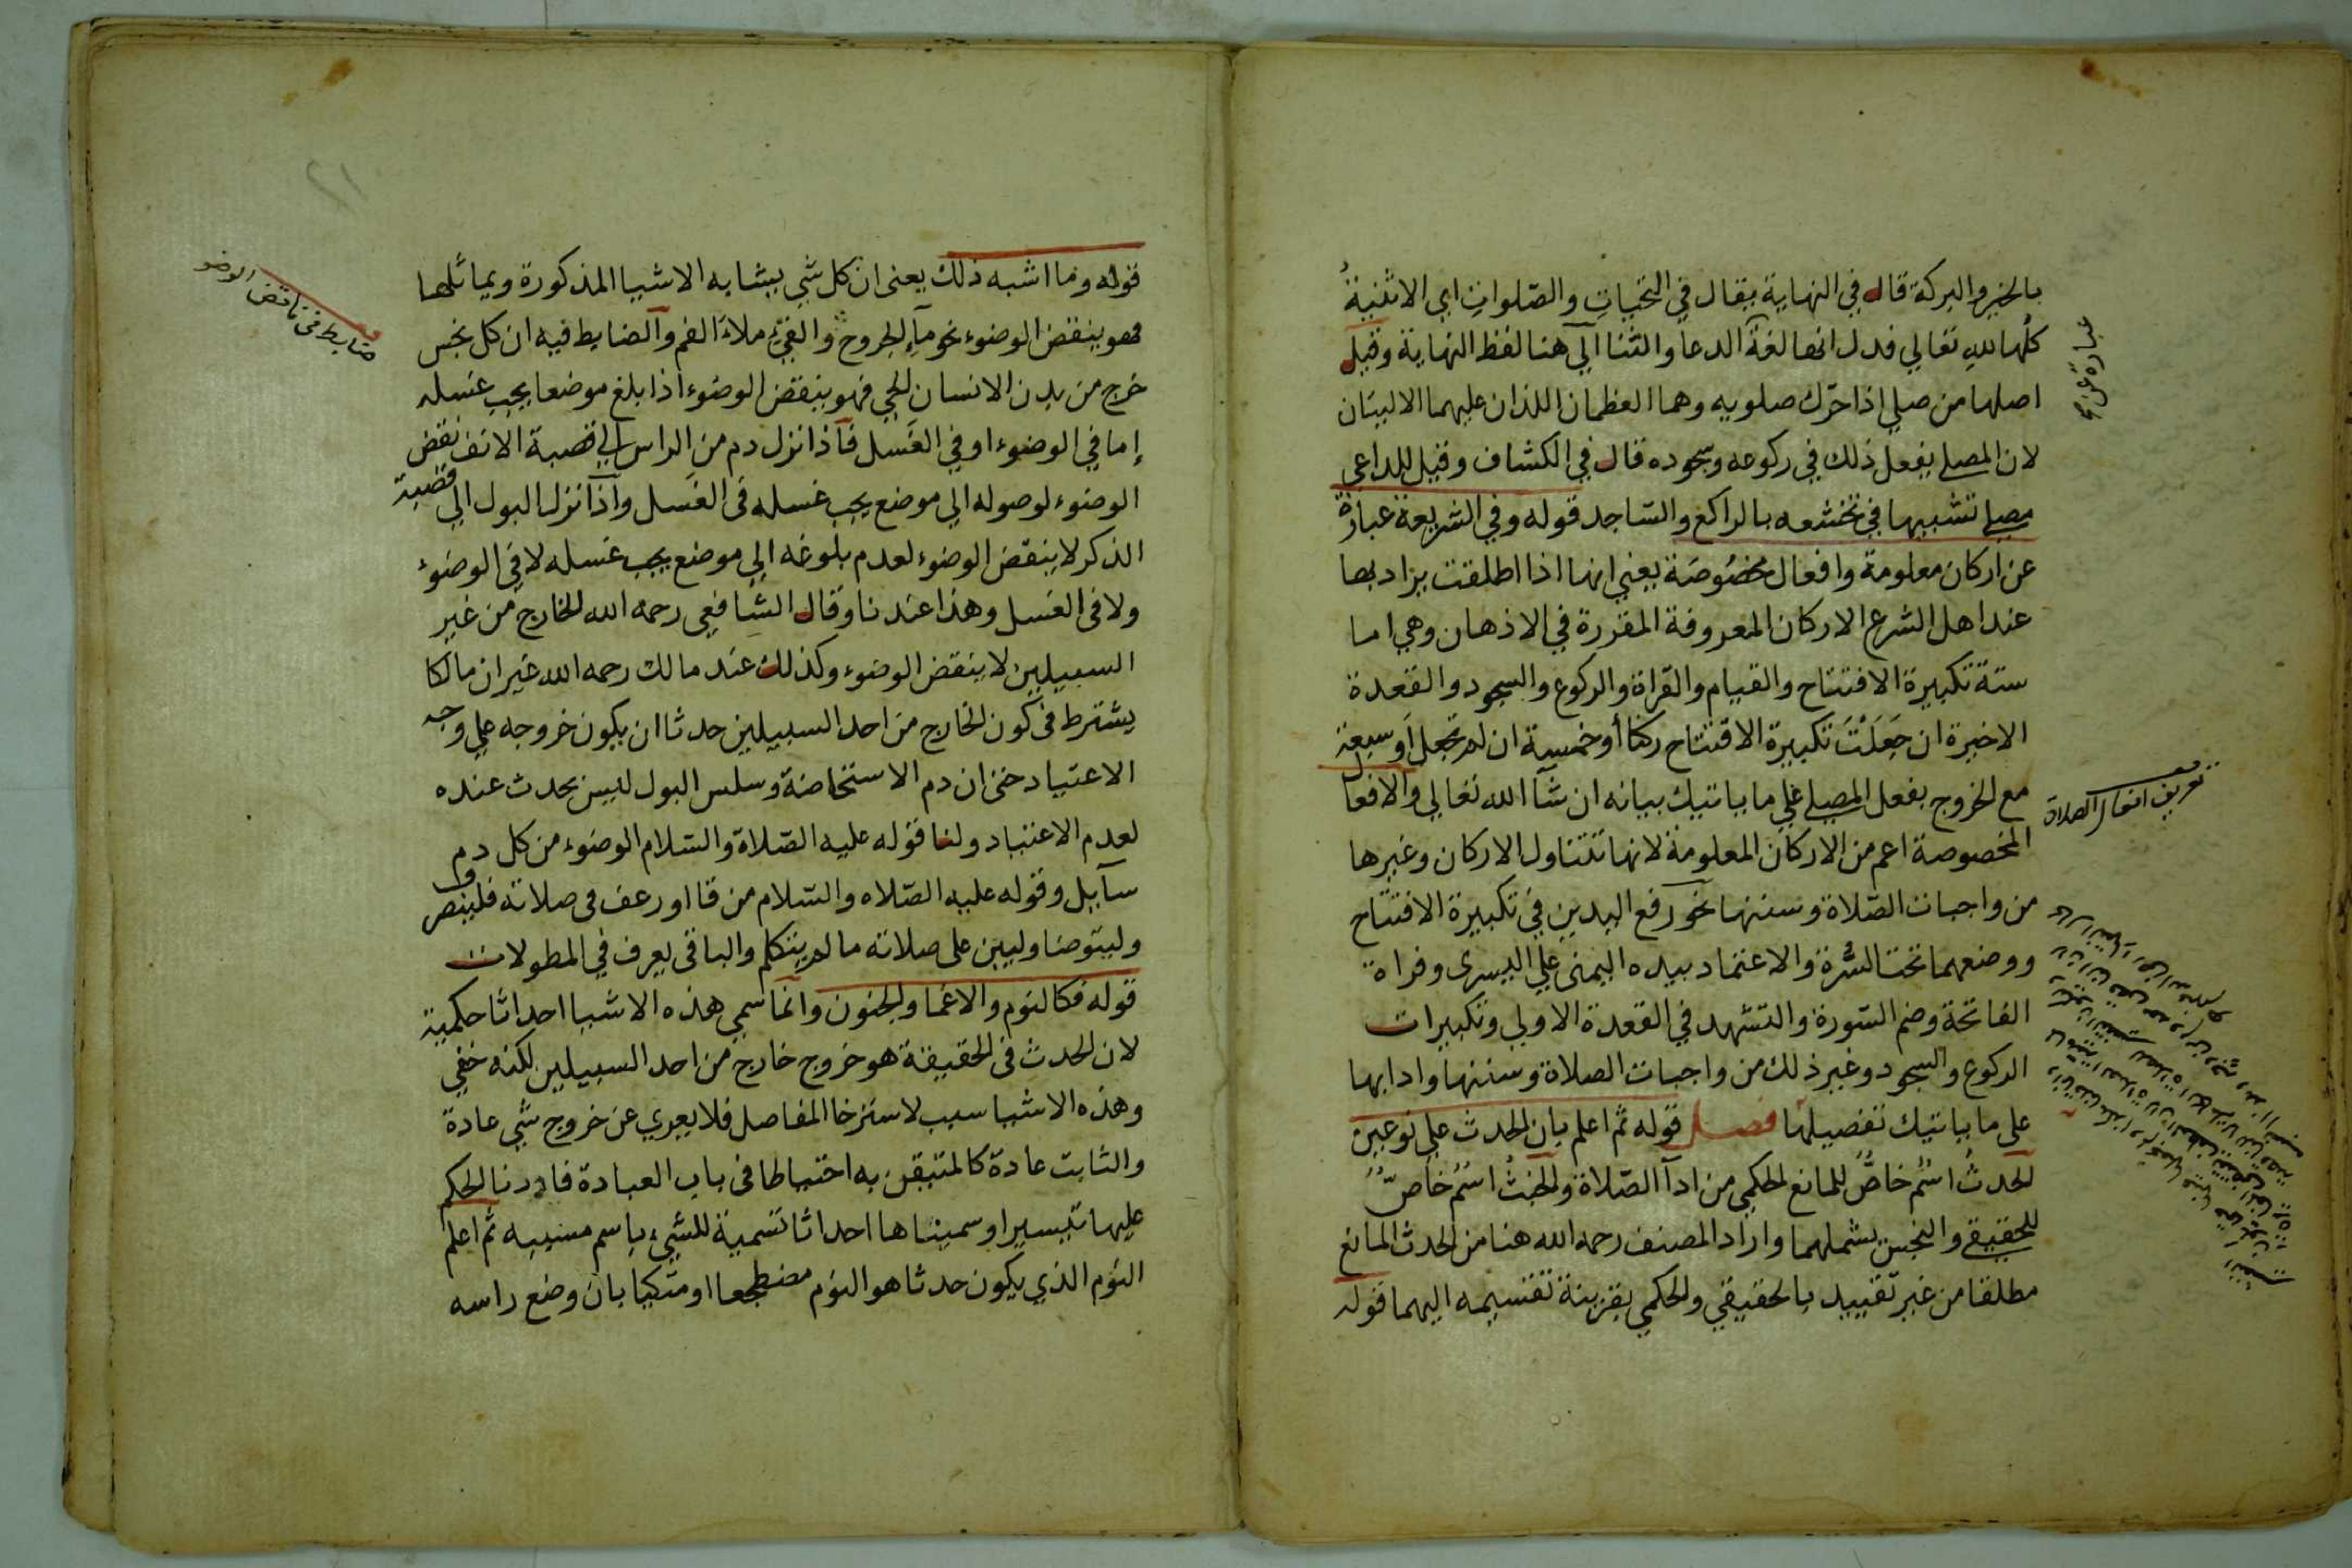 بالخير والبركة قال في النهاية يقال في التحيات والصلوات اي الاثنية
كلها لله تعالي فدل انها لغة الدعا والثنا الي هنا لفظ النهاية وقيل
اصلها من صلي اذا حرك صلويه وهما العظمان اللذان عليهما الاليتان
لان المصلي يفعل ذلك في ركوعه وسجوده قال في الكشاف وقيل للداعي
مصلي تشبيها في تخشعه بالراكع والساجد قوله وفي الشريعة عبارة
عن اركان معلومة وافعال مخصوصة يعني انها اذا اطلقت يراد بها
عند اهل الشرع الاركان المعروفة المقررة في الاذهان وهي اما
ستة تكبيرة الافتتاح والقيام والقراة والركوع والسجود والقعدة
الاخيرة ان جعلت تكبيرة الافتتاح ركنا أو خمسة ان لم تجعل أو سبعة
مع الخروج بفعل المصلي علي ما ياتيك بيانه ان شآ الله تعالي والافعال
المخصوصة اعم من الاركان المعلومة لانها تتناول الاركان وغيرها
من واجبات الصلاة وسننها نحو رفع اليدين في تكبيرة الافتتاح
ووضعهما تحت السرة والاعتماد بيده اليمنى علي اليسرى وقراة
الفاتحة وضم السورة والتشهد في القعدة الاولي وتكبيرات
الركوع والسجود وغير ذلك من واجبات الصلاة وسننها وادابها
على ما ياتيك تفصيلها فصل قوله ثم اعلم بان الحدث علي نوعين
الحدث اسم خاص للمانع الحكمي من ادآ الصلاة والخبث اسم خاص
للحقيقي والنجس يشملهما واراد المصنف رحمه الله هنا من الحدث المانع
مطلقا من غير تقييد بالحقيقي والحكمي بقرينة تقسيمه اليهما قوله
تعريف افعال الصلاة
قوله وما اشبه ذلك يعنى ان كل شي يشابه الاشيا المذكورة ويماثلها
فهو ينقض الوضوء نحو مآء الجروح والقيء ملاء الفم والضابط فيه ان كل نجس
خرج من بدن الانسان الحي فهو ينقض الوضوء اذا بلغ موضعا يجب غسله
إما في الوضوء او في الغسل فاذا نزل دم من الراس الي قصبة الانف نقض
الوضوء لوصوله الي موضع يجب غسله فى الغسل واذا نزل البول الي قصبة
الذكر لا ينقض الوضوء لعدم بلوغه الي موضع يجب غسله لا في الوضوء
ولا فى الغسل وهذا عندنا وقال الشافعي رحمه الله الخارج من غير
السبيلين لا ينقض الوضوء وكذلك عند مالك رحمه الله غير ان مالكا
يشترط فى كون الخارج من احد السبيلين حدثا ان يكون خروجه علي وجه
الاعتياد حتى ان دم الاستحاضة وسلس البول ليس بحدث عنده
لعدم الاعتياد ولنا قوله عليه الصلاة والسلام الوضوء من كل دم
سآيل وقوله عليه الصلاه والسلام من قا او رعف فى صلاته فلينصرف
وليتوضا وليبن على صلاته ما لم يتكلم والباقى يعرف في المطولات
قوله فكالنوم والاغما والجنون وانما سمي هذه الاشيا احداثا حكمية
لان الحدث فى الحقيقة هو خروج خارج من احد السبيلين لكنه خفي
وهذه الاشيا سبب لاسترخا المفاصل فلا يعري عن خروج شي عادة
والثابت عادة كالمتيقن به احتياطا فى باب العبادة فادرنا الحكم
عليها تيسيرا وسميناها احداثا تسمية للشيء باسم مسببه ثم اعلم
النوم الذي يكون حدثا هو النوم مضطجعا او متكيا بان وضع راسه
ضابط فى ناقض الوضو
٢١